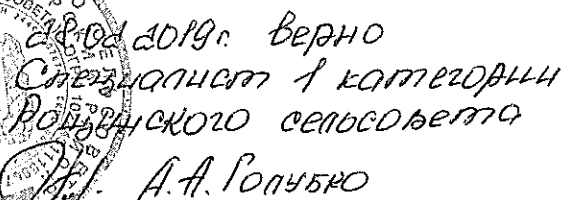 2019г. верно
Специалист 1 категории
Рощинского сельсовета
А.А. Голубко